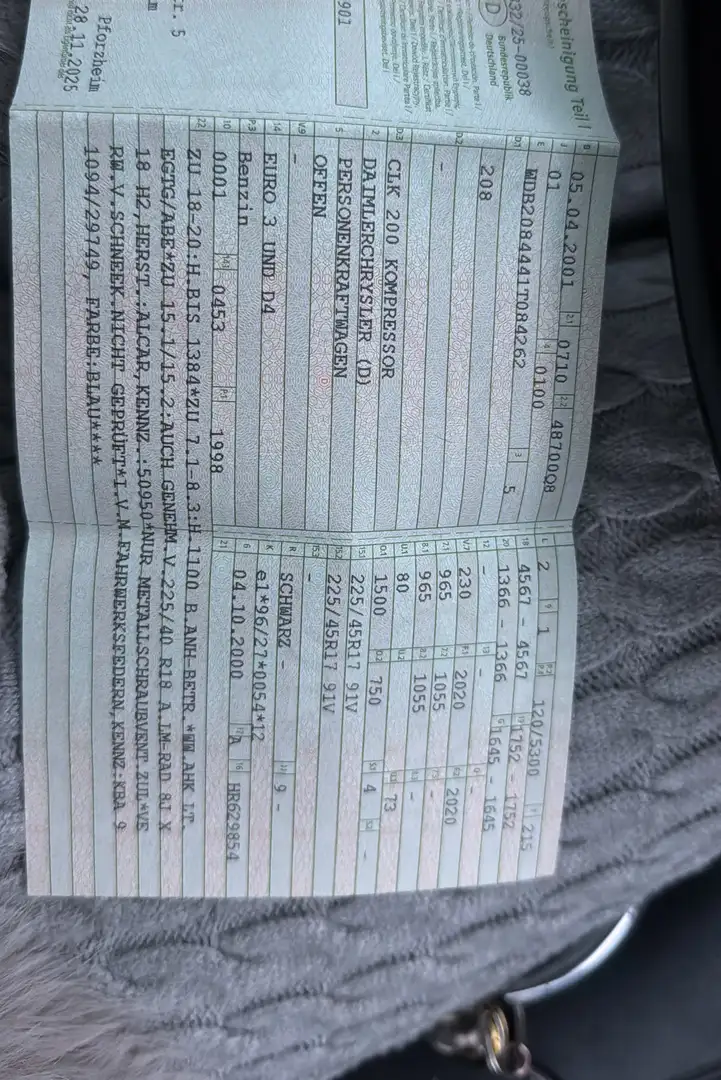 scheinigung Teil I
032/25-00038
D
Bundesrepublik
Deutschland
901
r. 5
Pforzheim
28.11.2025
B 05.04.2001 2.1 0710 2.2 48700Q8
J 01 4 0100
E WDB2084441T084262 3 5
D.1
D.2 208
-
D.3 CLK 200 KOMPRESSOR
2 DAIMLERCHRYSLER (D)
5 PERSONENKRAFTWAGEN
OFFEN
V.9 -
14 EURO 3 UND D4
P.3 Benzin
10 0001 14.1 0453 P.1 1998
L 2 9 1 P.2/P.4 120/5300 T 215
18 4567 - 4567 19 1752 - 1752
20 1366 - 1366 G 1645 - 1645
12 - 13 - Q -
V.7 230 F.1 2020 F.2 2020
7.1 965 7.2 1055 7.3 -
8.1 965 8.2 1055 8.3 -
U.1 80 U.2 U.3 73
O.1 1500 O.2 750 S.1 4 S.2 -
15.1 225/45R17 91V
15.2 225/45R17 91V
15.3 -
R SCHWARZ - 11 9 -
K e1*96/27*0054*12
6 04.10.2000 17 A 16 HR629854
21
22 ZU 18-20:H.BIS 1384*ZU 7.1-8.3:H.1100 B.ANH-BETR.*WW.AHK LT.
EGTG/ABE*ZU 15.1/15.2:AUCH GENEHM.V.225/40 R18 A.LM-RAD 8J X
18 H2,HERST.:ALCAR,KENNZ.:50950*NUR METALLSCHRAUBVENT.ZUL*VE
RW.V.SCHNEEK.NICHT GEPRÜFT*I.V.M.FAHRWERKSFEDERN,KENNZ:KBA 9
1094/29749, FARBE:BLAU****